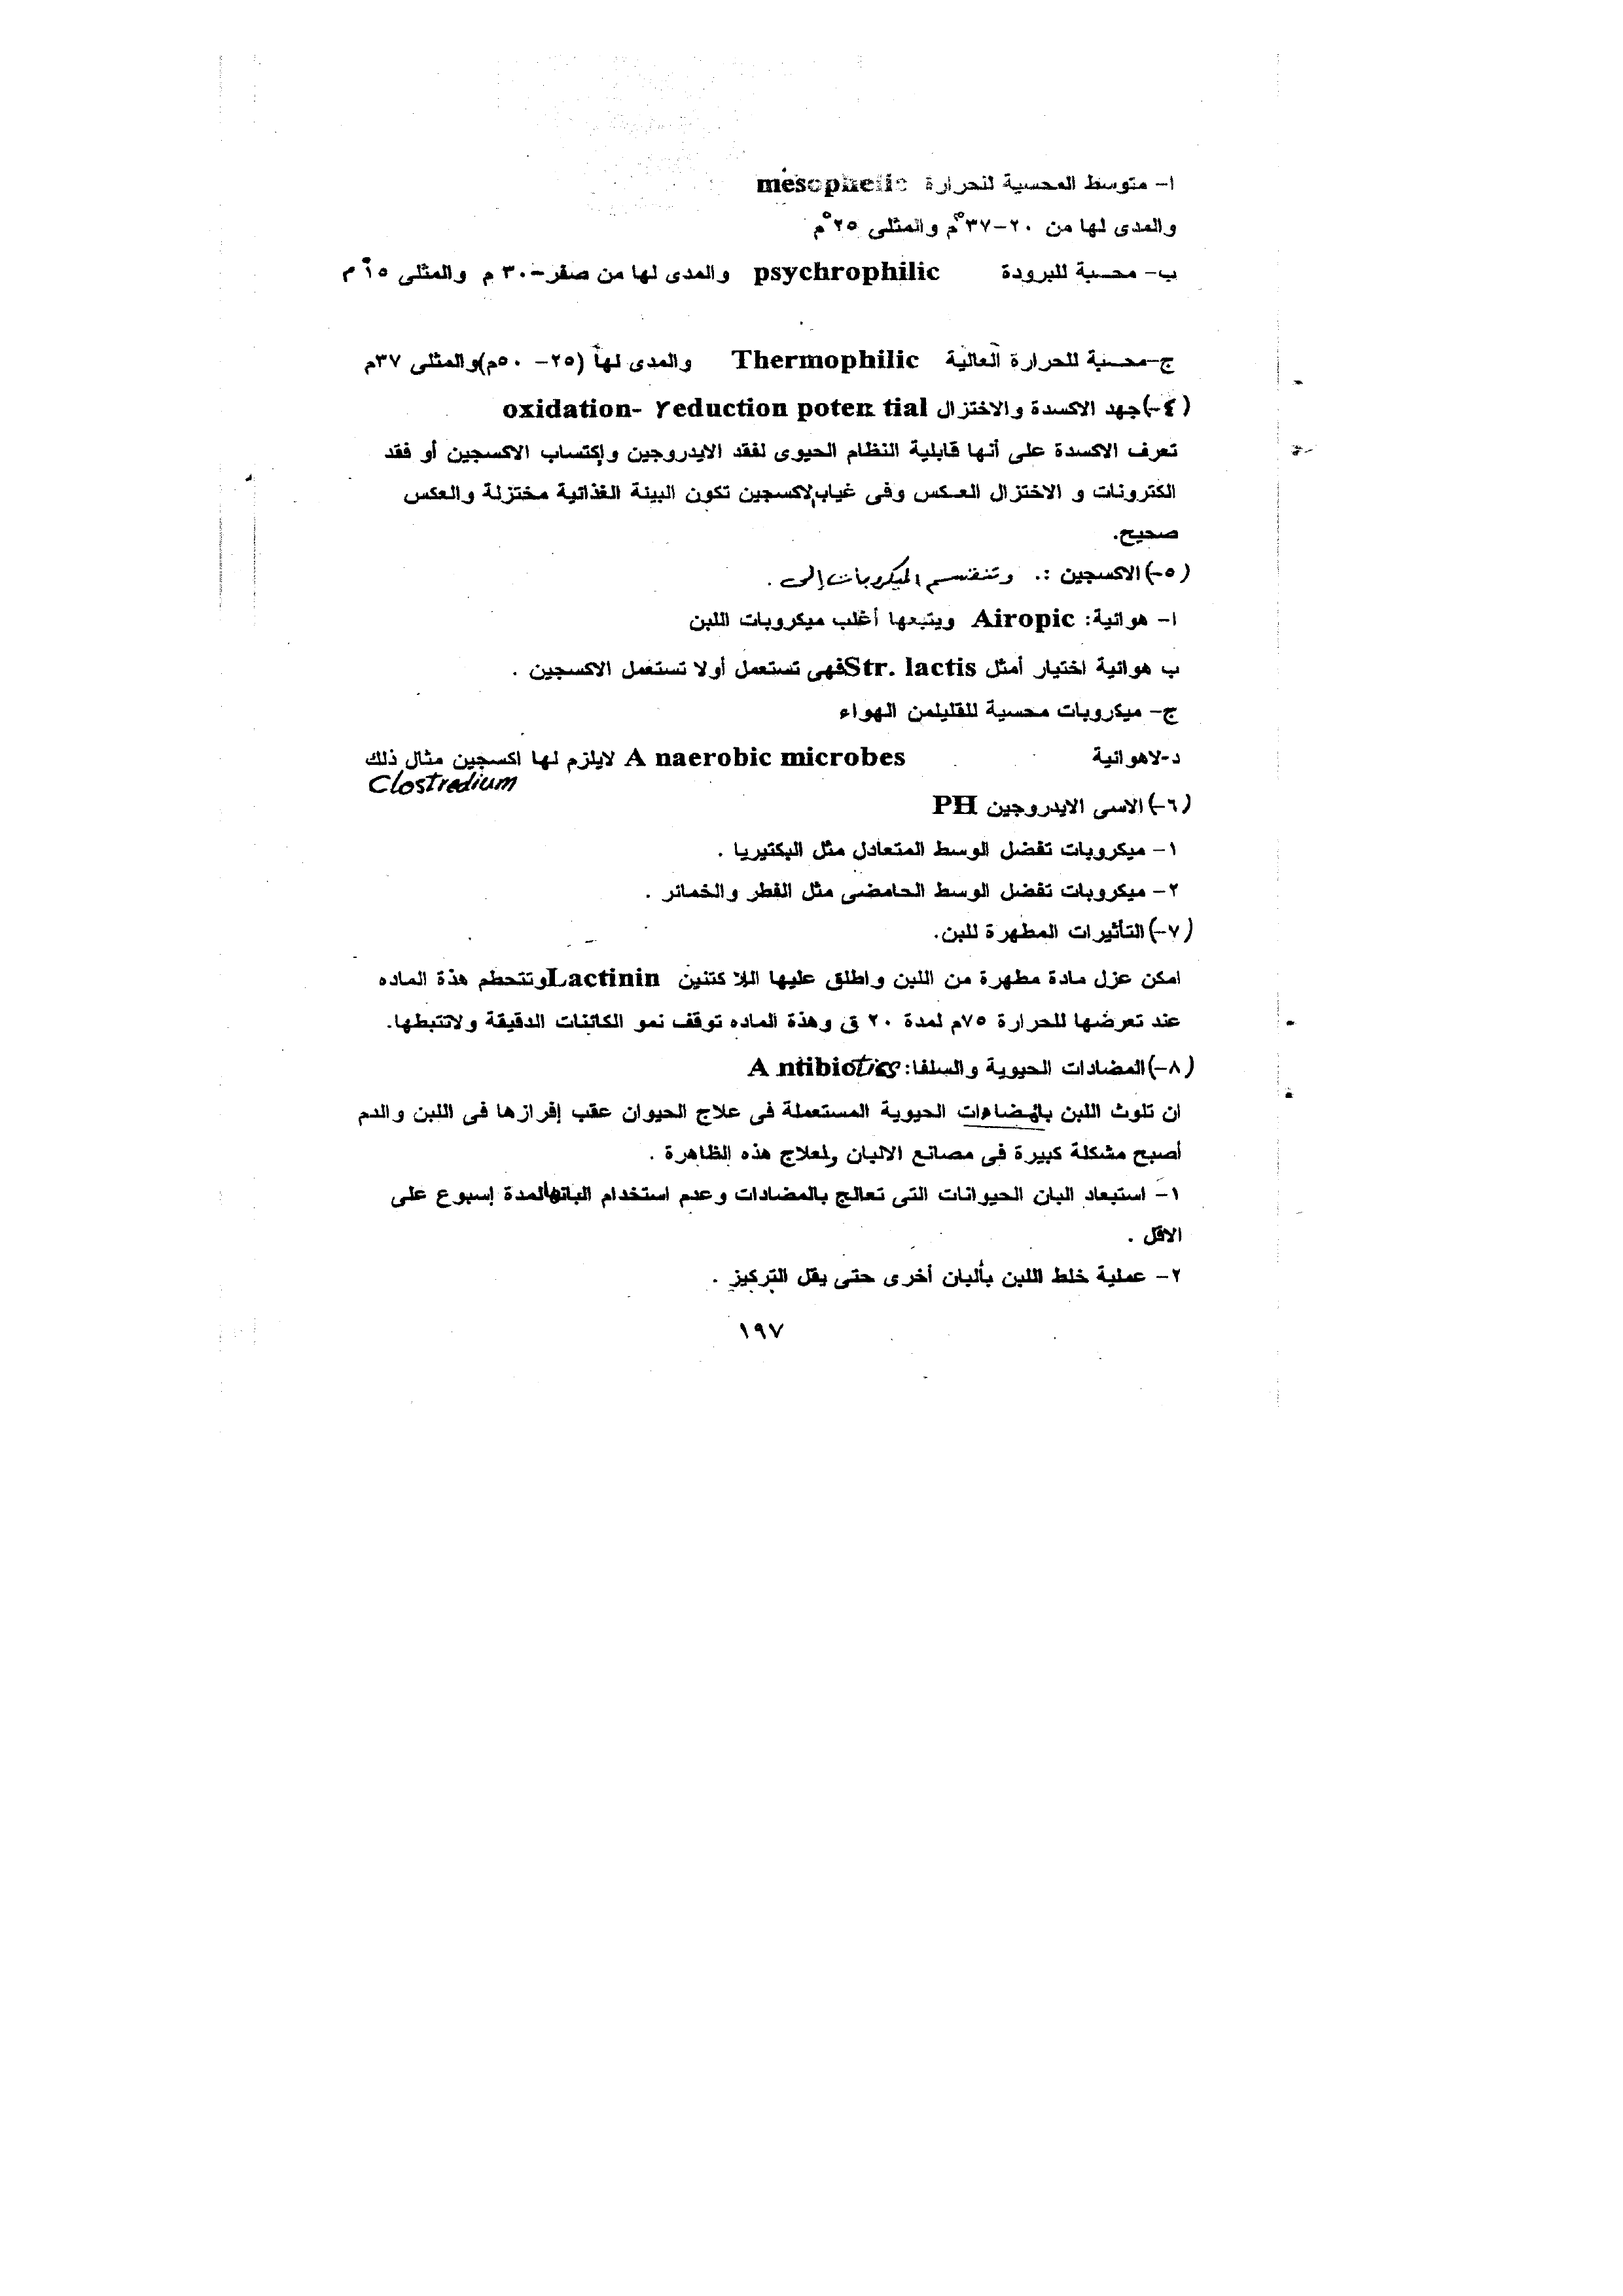 ا- متوسط المحسية للحرارة mesophelic
والمدى لها من ٢٠-٣٧°م والمثلى ٢٥°م
ب- محسبة للبرودة psychrophilic والمدى لها من صفر-٣٠ م والمثلى ١٥ م
ج-محسنبة للحرارة العالية Thermophilic والمدى لها (٢٥- ٥٠م)والمثلى ٣٧م
(٤-)جهد الاكسدة والاختزال oxidation- reduction poten tial
تعرف الاكسدة على أنها قابلية النظام الحيوى لفقد الايدروجين وإكتساب الاكسجين أو فقد
الكترونات و الاختزال العكس وفى غياب الاكسجين تكون البيئة الغذائية مختزلة والعكس
صحيح.
(٥-)الاكسجين :. وتنقسم الميكروبات إلى .
ا- هوائية: Airopic ويتبعها أغلب ميكروبات اللبن
ب هوائية اختيار أمثل Str. lactisفهى تستعمل أولا تستعمل الاكسجين .
ج- ميكروبات محسية للقليلمن الهواء
د-لاهوائية A naerobic microbes لايلزم لها اكسجين مثال ذلك
Clostredium
(٦-)الاسى الايدروجين PH
١- ميكروبات تفضل الوسط المتعادل مثل البكتيريا .
٢- ميكروبات تفضل الوسط الحامضى مثل الفطر والخمائر .
(٧-)التأثيرات المطهرة للبن.
امكن عزل مادة مطهرة من اللبن واطلق عليها اللاكتنين Lactininوتتحطم هذة الماده
عند تعرضها للحرارة ٧٥م لمدة ٢٠ ق وهذة الماده توقف نمو الكائنات الدقيقة ولاتثبطها.
(٨-)المضادات الحيوية والسلفا: A ntibiotics
ان تلوث اللبن بالمضادات الحيوية المستعملة فى علاج الحيوان عقب إفرازها فى اللبن والدم
أصبح مشكلة كبيرة فى مصانع الالبان ولعلاج هذه الظاهرة .
١- استبعاد البان الحيوانات التى تعالج بالمضادات وعدم استخدام البانها لمدة إسبوع على
الاقل .
٢- عملية خلط اللبن بألبان أخرى حتى يقل التركيز .
١٩٧